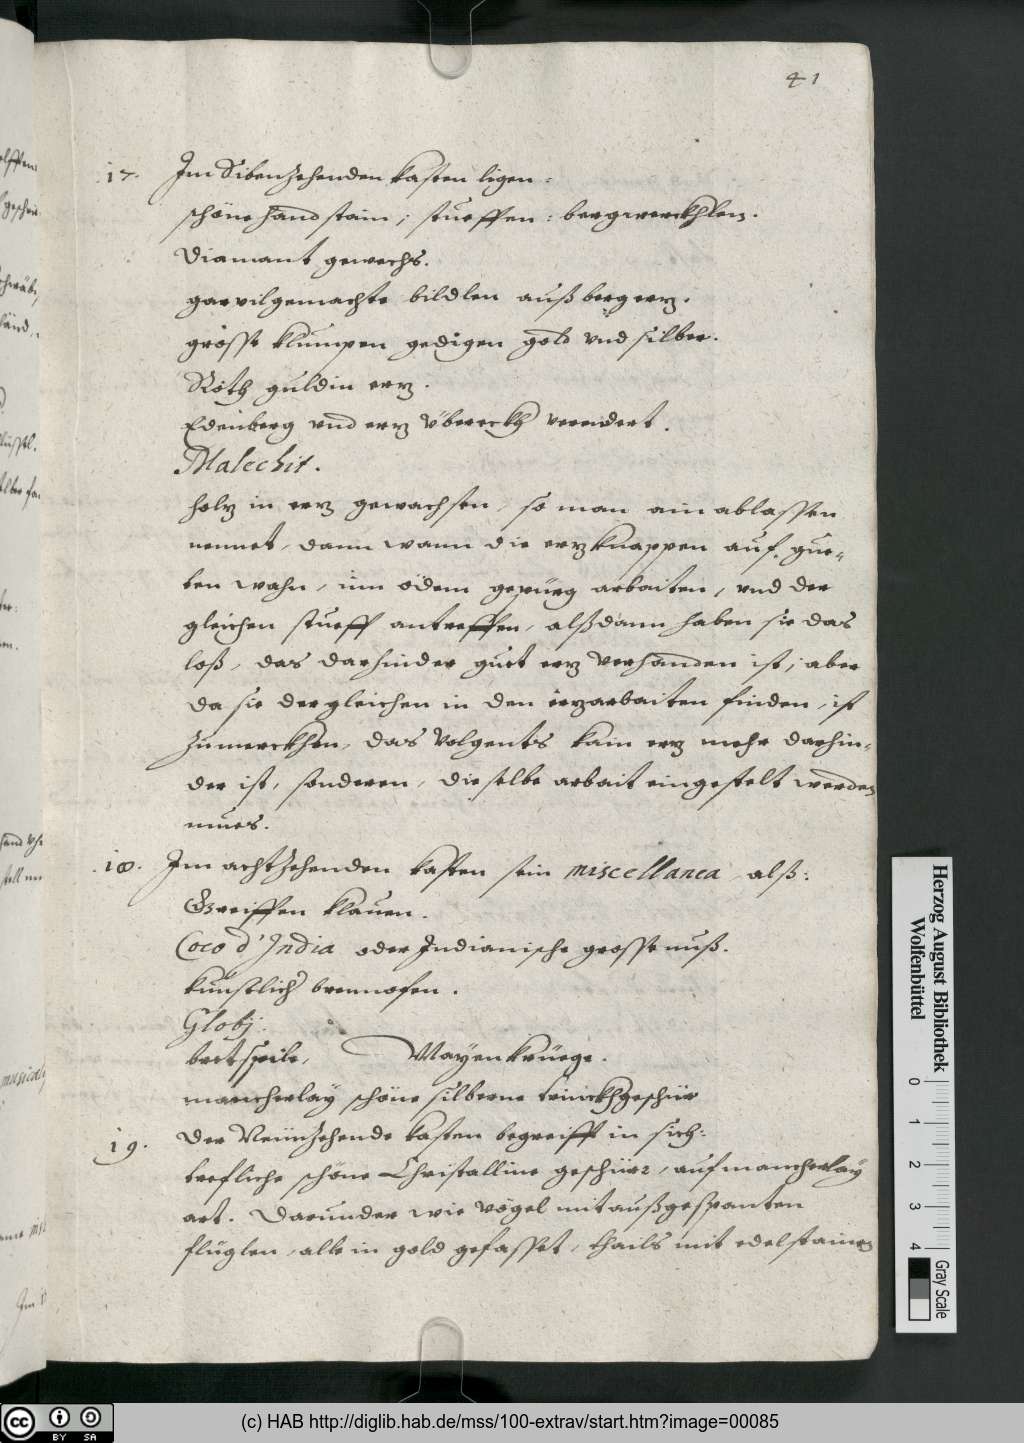 41
17. Im Sibenzehenden kasten ligen:
schöne handstain, stueffen: bergwerckhlen.
Diamant gewechs.
gar vil gemachte bildlen auß bergerz.
grosse klumpen gedigen gold vnd silber.
Roth guldin erz.
Edenberg vnd erz überreckh verendert.
Malechit.
holz in erz gewachsen, so man ain ablassen
nennet, dann wann die erzknappen auf gue-
ten wahn, inn ödem gepürg arbaiten, vnd der
gleichen stueff antreffen, alßdann haben sie das
loß, das darhinder guet erz verhanden ist; aber
da sie dergleichen in den erzarbaiten finden, ist
zumerckhen, das volgents kain erz mehr darhin-
der ist, sonderen, dieselbe arbait eingestelt werden
mues.
18. Im achtzehenden kasten sein miscellanea, alß:
Greiffen klauen.
Coco d'India oder Indianische grosse nuß.
kunstlich brennofen.
Globj.
bretspile, Mayenkrüege.
mancherlay schöne silberne trinckhgeschür
19. Der Neünzehende kasten begreifft in sich:
trefliche schöne Christalline geschürr, auf mancherlay
art. Darunder wie vögel mit außgespanten
flüglen, alle in gold gefasset, thails mit edelstainen
Herzog August Bibliothek
Wolfenbüttel
0 1 2 3 4
Gray Scale
cc BY SA
(c) HAB http://diglib.hab.de/mss/100-extrav/start.htm?image=00085